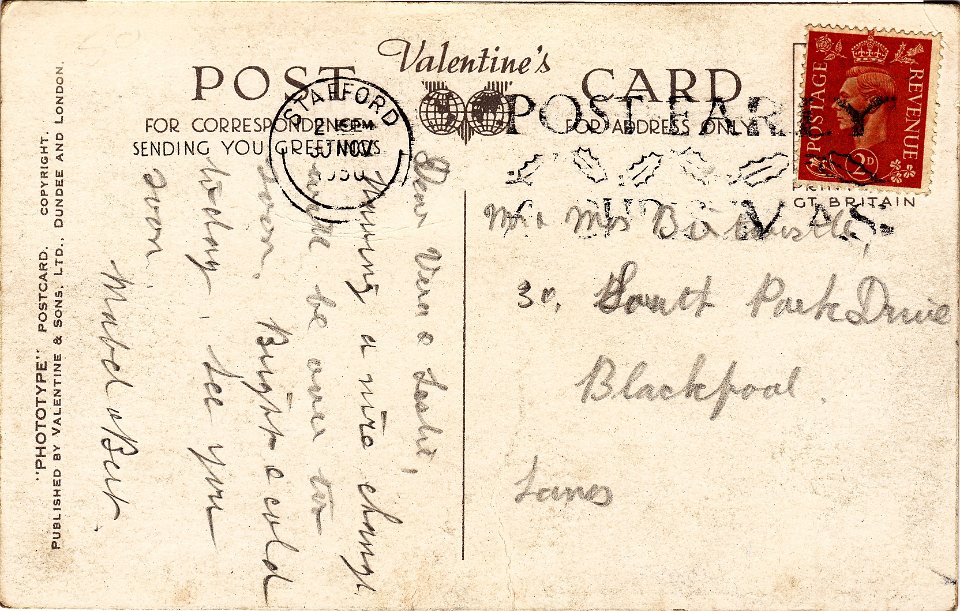 Valentine's
POST CARD
FOR CORRESPONDENCE
SENDING YOU GREETINGS
FOR ADDRESS ONLY
STAFFORD
2 15 PM
30 NOV
POST EARLY
POSTAGE REVENUE
2D
GT. BRITAIN
"PHOTOTYPE" POSTCARD. COPYRIGHT.
PUBLISHED BY VALENTINE & SONS, LTD., DUNDEE AND LONDON.
Dear Vera & Leslie,
Having a nice change
will be over too
soon. Bright & cold
today. See you
soon.
Mabel & Bert
Mr & Mrs Birtwistle,
30, South Park Drive
Blackpool.
Lancs